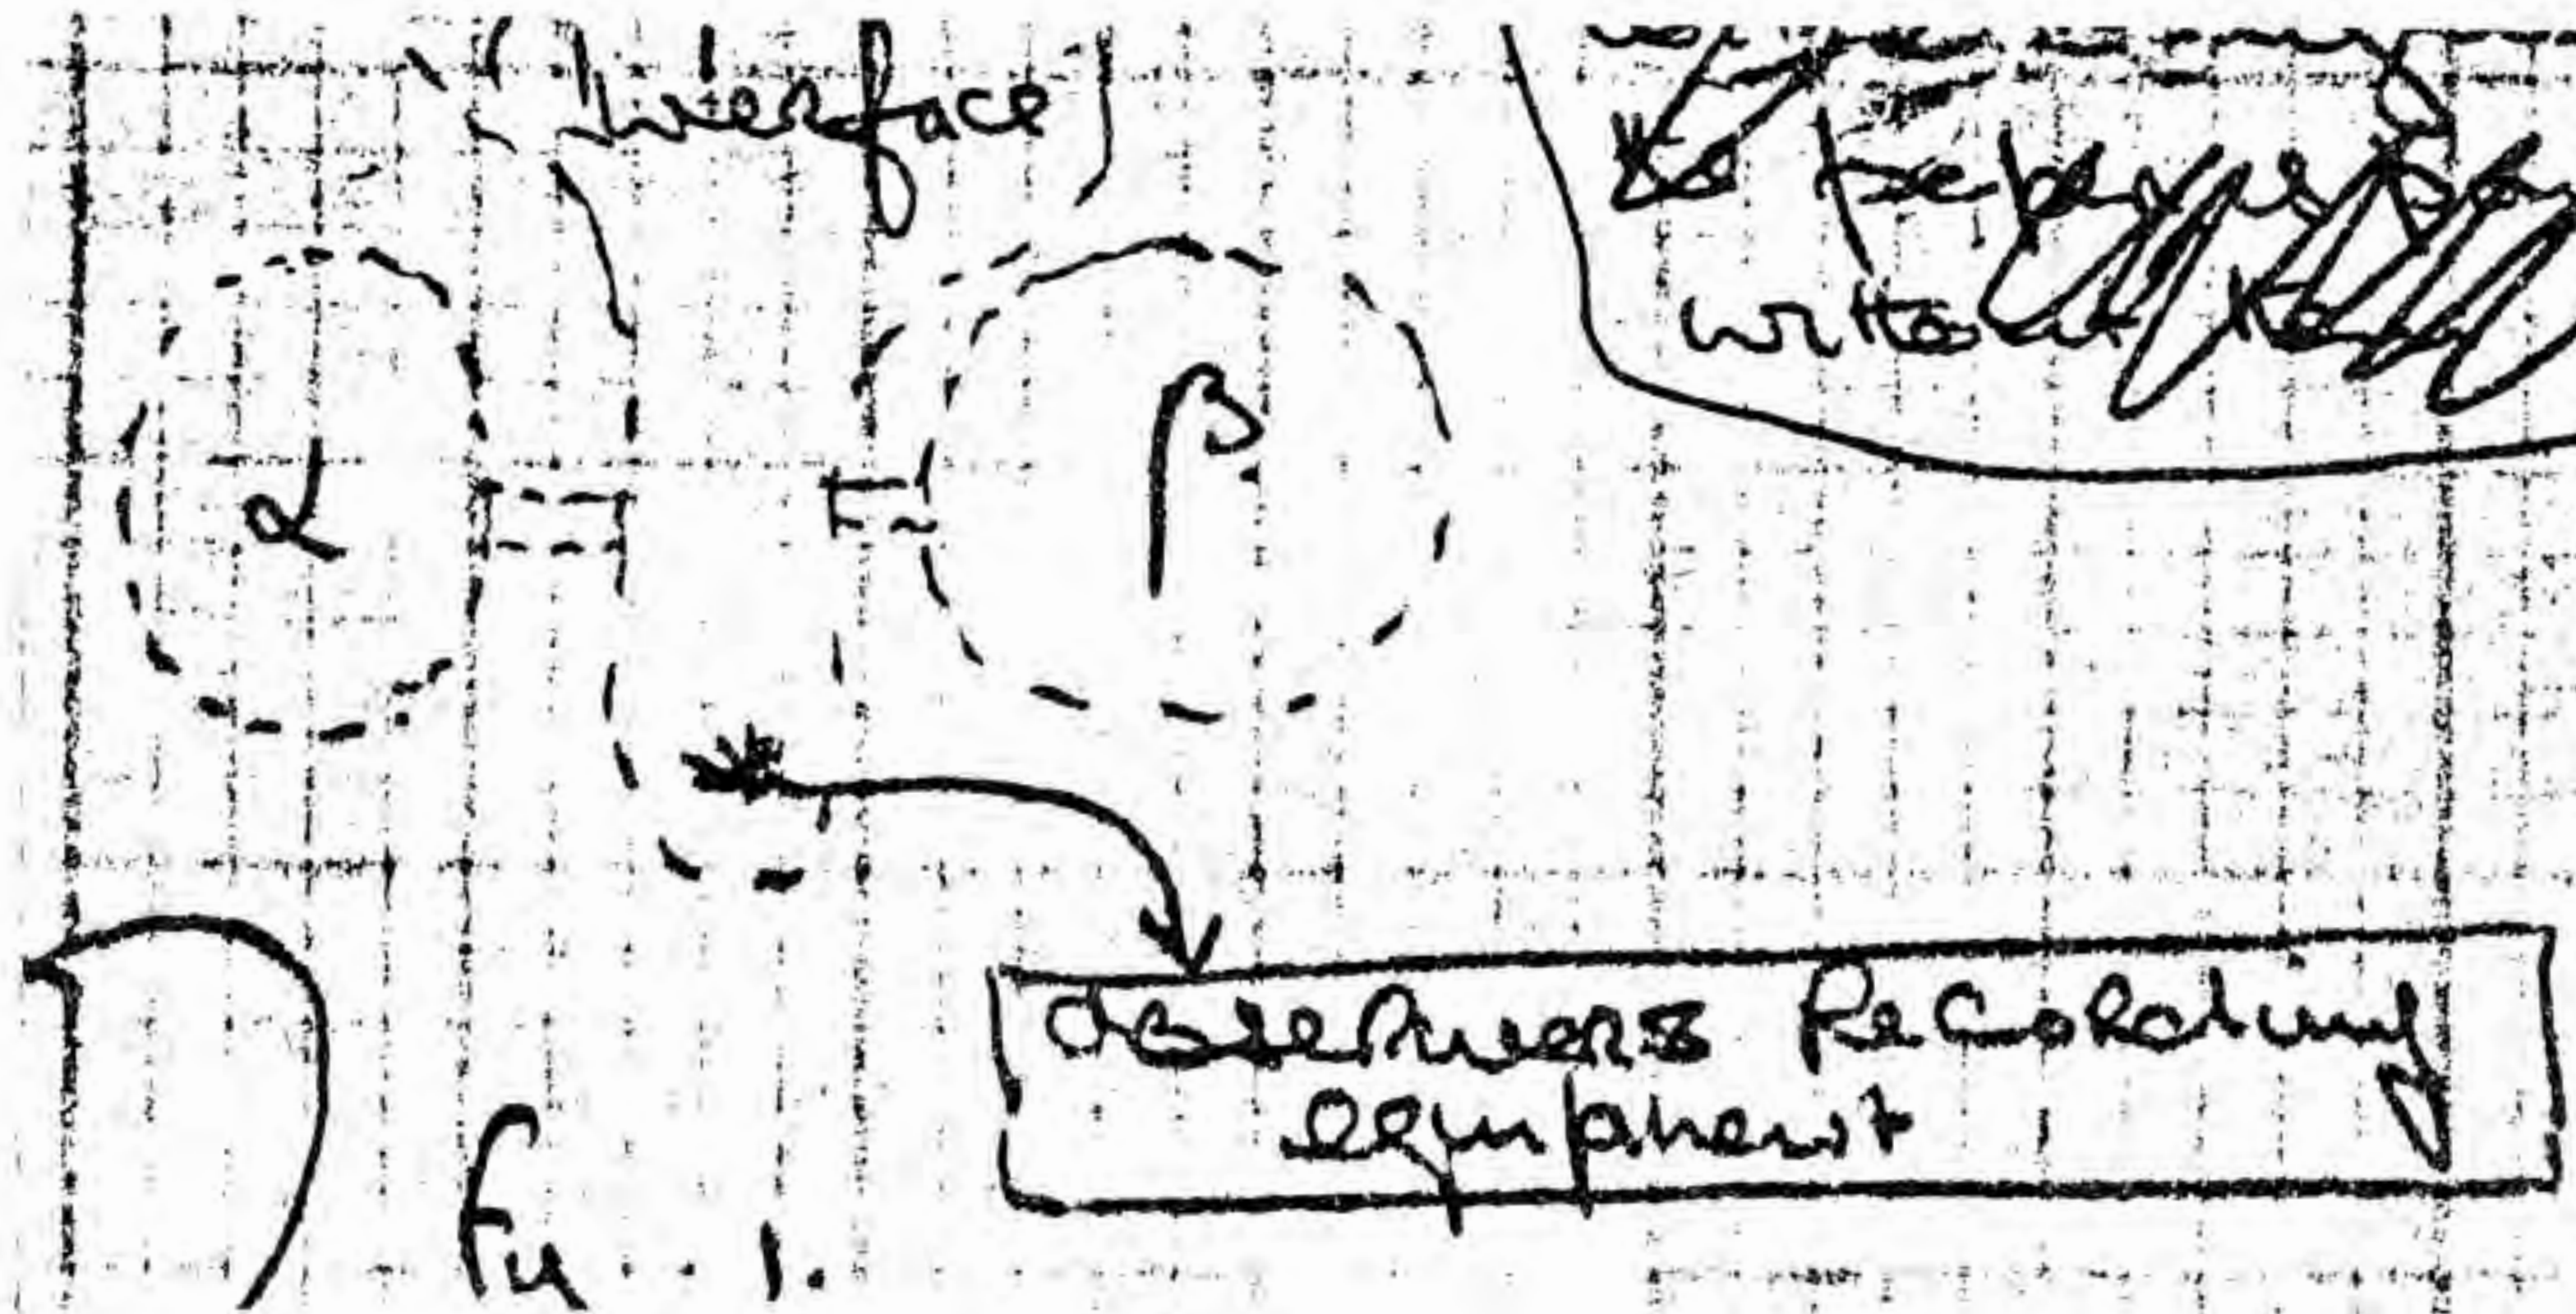 (Interface)
without
α
β
Observers Recording
equipment
Fig. 1.